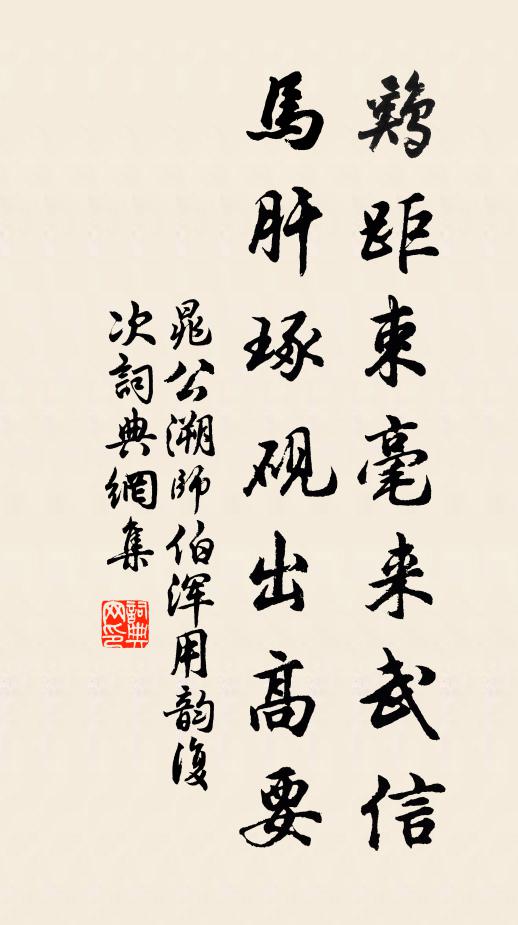 鷄距束毫来武信
馬肝琢硯出高要
晁公溯師伯浑用韵復
次詞典網集
詞典网印